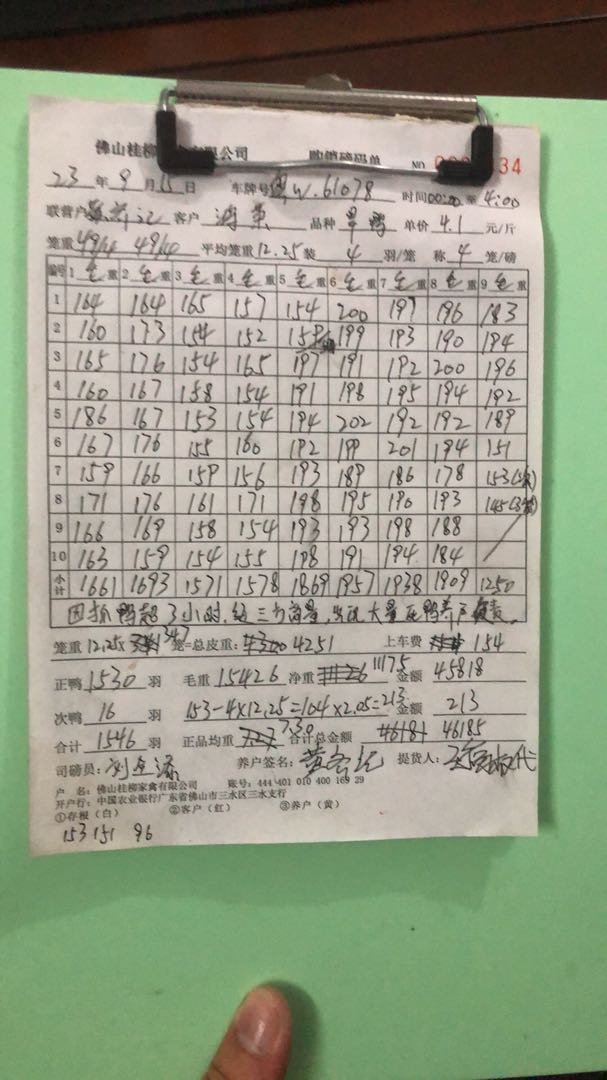 佛山桂柳家禽有限公司 购销磅码单 NO 34
23 年 9 月 15 日 车牌号 粤W.61078 时间00:00至 4:00
联营户 客户 品种 旱鸭 单价 4.1 元/斤
笼重 49/4 49/4 平均笼重 12.25 装 4 羽/笼 称 4 笼/磅
编号 1 毛重 2 毛重 3 毛重 4 毛重 5 毛重 6 毛重 7 毛重 8 毛重 9 毛重
1 164 164 165 157 154 200 197 196 183
2 160 173 154 152 199 193 190 194
3 165 176 154 165 197 191 192 200 196
4 160 167 158 154 191 198 195 194 192
5 186 167 153 154 194 202 192 192 189
6 167 176 155 160 192 199 201 194 151
7 159 166 159 156 193 189 186 178 153
8 171 176 161 171 198 195 190 193 145
9 166 169 158 154 193 193 198 188
10 163 159 154 155 198 191 194 184
小计 1661 1693 1571 1578 1869 1957 1938 1909 1250
因抓鸭超3小时,经三方商量,发现大量死鸭养户负责。
笼重 12.25× 347 笼=总皮重: 4251 上车费 154
正鸭 1530 羽 毛重 15426 净重 11175 金额 45818
次鸭 16 羽 153-4×12.25=104×2.05=213 金额 213
合计 1546 羽 正品均重 7.30 合计总金额 46185
司磅员: 养户签名: 提货人: 代
户 名: 佛山桂柳家禽有限公司 账号: 444 401 010 400 169 29
开户行: 中国农业银行广东省佛山市三水区三水支行
①存根(白) ②客户(红) ③养户(黄)
153 151 96